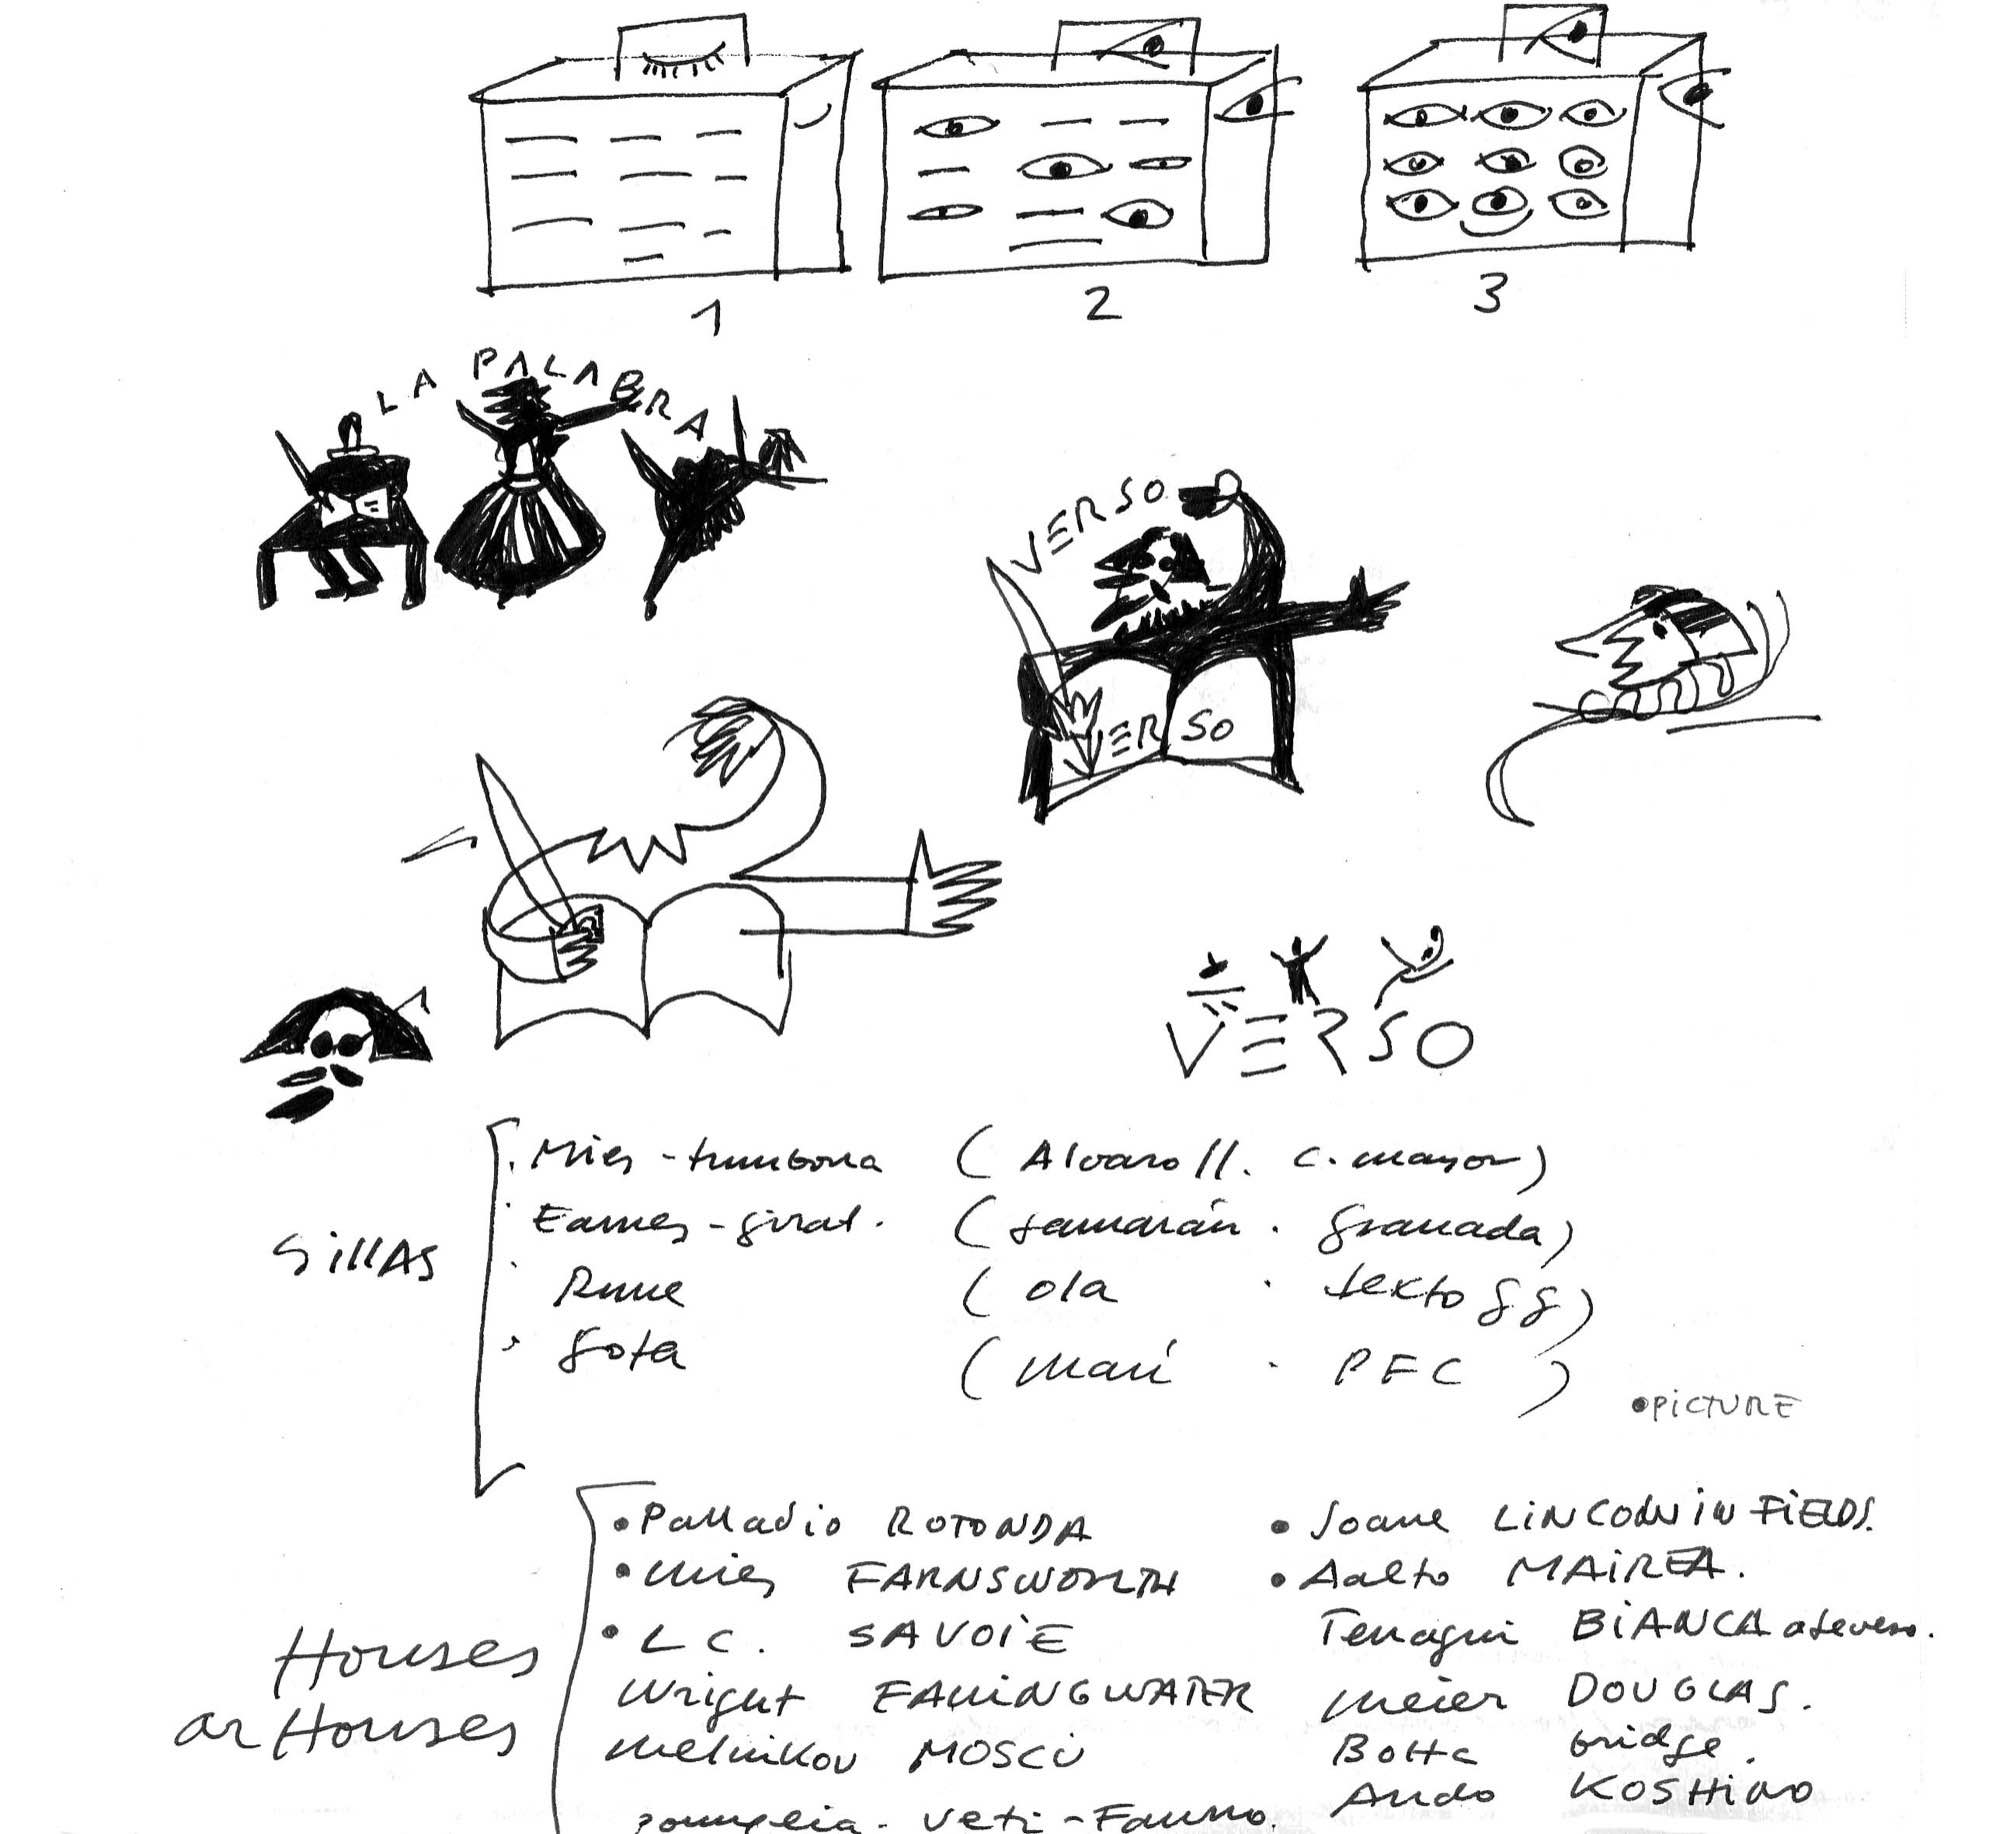 1 2 3
LA PALABRA
VERSO
VERSO
VERSO
sillas
. Mies - tumbona ( Alvaro ll. c. mayor )
. Eames - girat. ( tamarán . granada )
. Rune ( ola . texto gg )
. gota ( mari . PFC )
• PiCTURE
Houses
or Houses
• Palladio ROTONDA
• Mies FARNSWORTH
• L C. SAVOiE
Wright FALLiNGWATER
Melnikov MOSCÚ
pompeia - Veti - Fauno.
• Soane LiNCOLN iN FiELDS.
• Aalto MAiREA.
Terragni BiANCA
Meier DOUGLAS.
Botta bridge.
Ando KOSHiNO